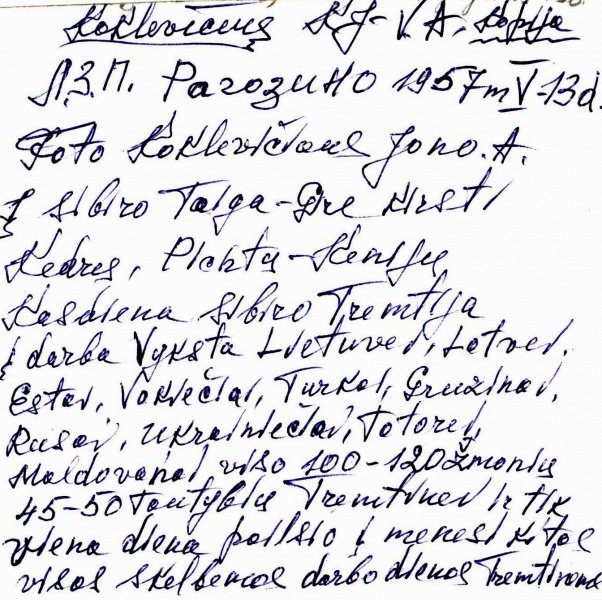 Koklevičius KJ-VA. kopija
Л.З.П. Парозино 1957m V-13d.
Foto Koklevičiaus Jono. A.
Į Sibiro Taiga-Gre kirsti
Kedrų, Pichtų-Kenijų
Kasdiena Sibiro Tremtija
į darba Vyksta Lietuvei, Latvei,
Estai, Vokiečiai, Turkai, Gruzinai,
Rusai, Ukrainiečiai, Totorei,
Moldovanai viso 100-120 žmonių
45-50 Tautybių Tremtinei ir tik
viena diena poilsio į menesi kitos
visos skelbemos darbo dienos Tremtinams